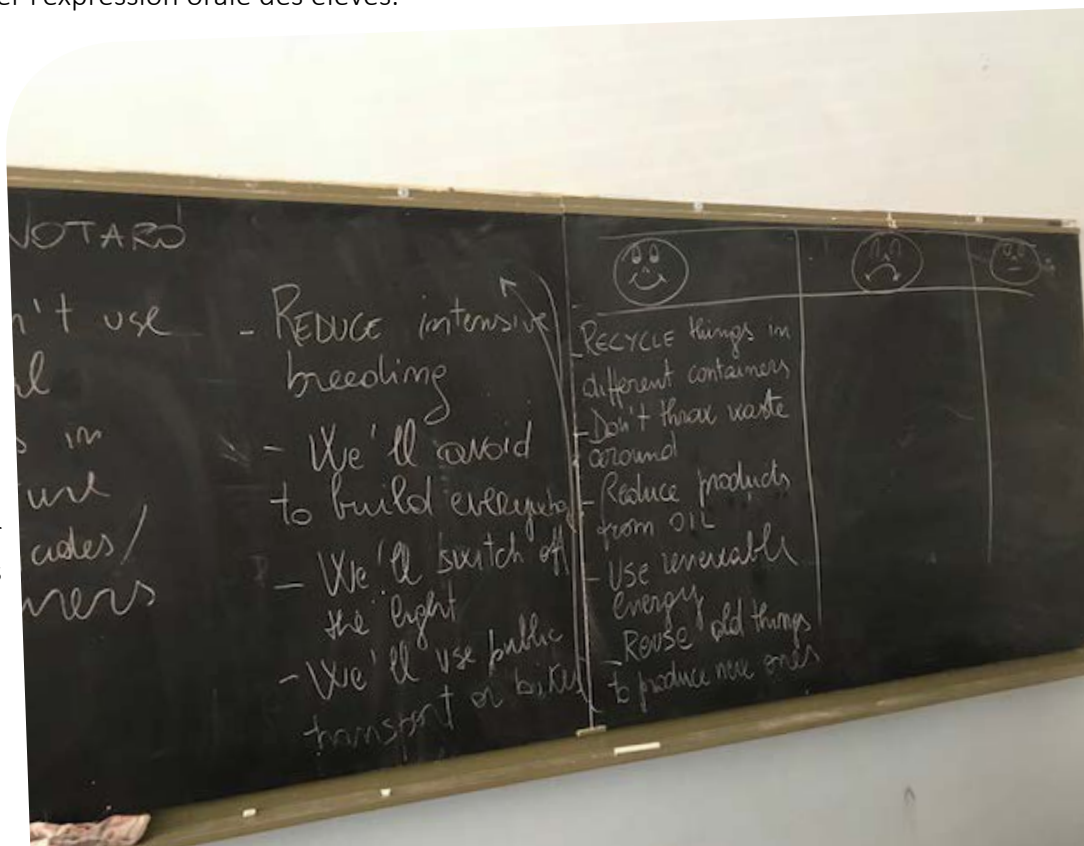 er l'expression orale des élèves.
NOTARO
n't use
s in
ure
cides/
mers
- REDUCE intensive
breeding
- We'll avoid
to build everywhere
- We'll switch off
the light
- We'll use public
transport or bikes
- RECYCLE things in
different containers
- Don't throw waste
around
- Reduce products
from OIL
- Use renewable
energy
- Reuse old things
to produce new ones